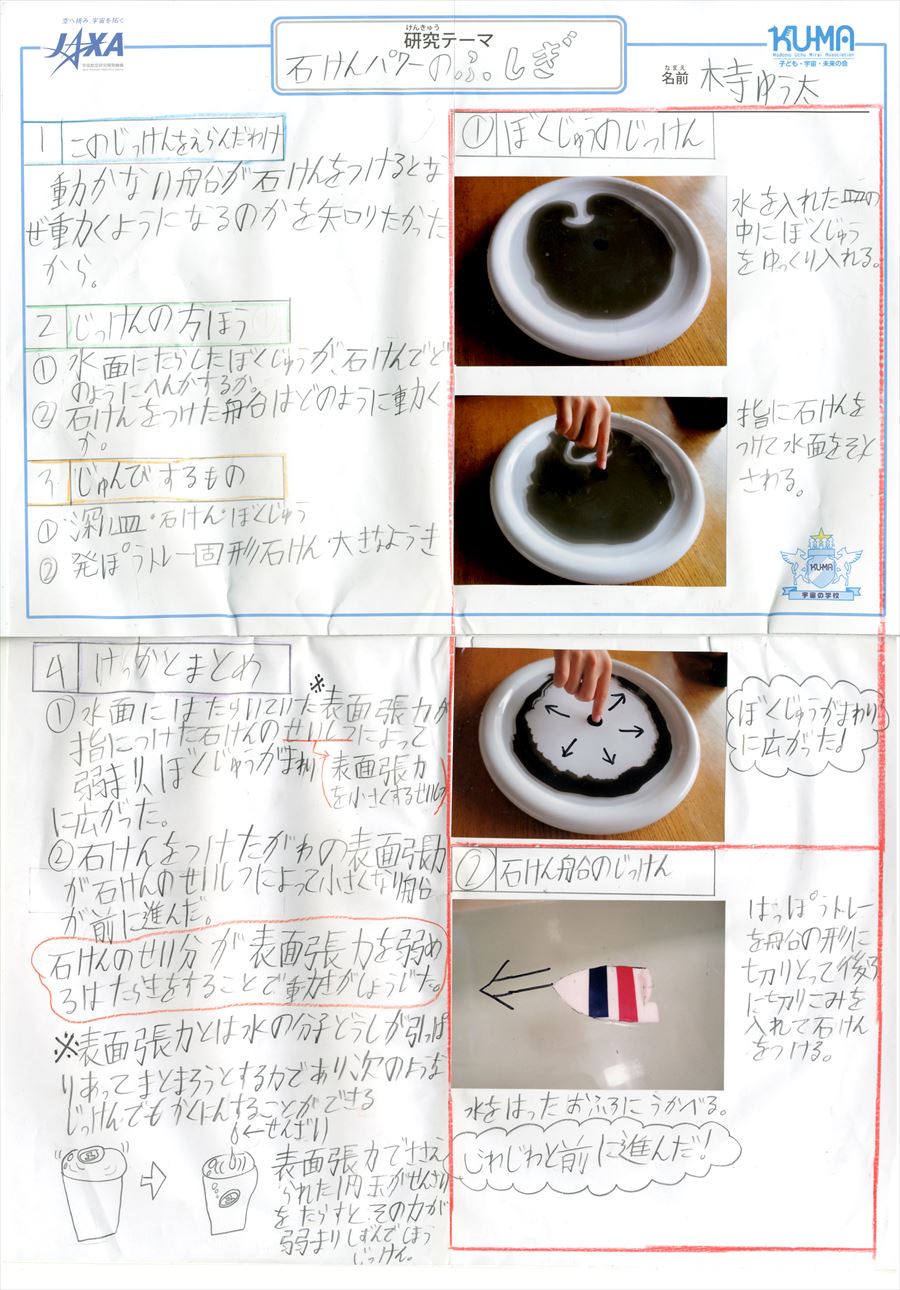 空へ挑み、宇宙を拓く
JAXA
宇宙航空研究開発機構
けんきゅう
研究テーマ
石けんパワーのふしぎ
KU-MA
Kodomo Uchu Mirai Association
子ども・宇宙・未来の会
なまえ
名前 木寺ゆう太
1 このじっけんをえらんだわけ
動かない舟台が石けんをつけるとな
ぜ動くようになるのかを知りたかった
から。
2 じっけんの方ほう
① 水面にたらしたぼくじゅうが、石けんでど
のようにへんかするか。
② 石けんをつけた船はどのように動く
か。
3 じゅんびするもの
① 深皿・石けん・ぼくじゅう
② 発ぽうトレー固形石けん大きなようき
① ぼくじゅうのじっけん
水を入れた皿の
中にぼくじゅう
をゆっくり入れる。
指に石けんを
つけて水面をそっと
さわる。
KU-MA
宇宙の学校
ぼくじゅうがまわり
に広がった!
4 けっかとまとめ
① 水面にはたらいていた※表面張力が
指につけた石けんのせいしつによって
弱まり、ぼくじゅうがまわり
に広がった。
表面張力
を小さくするせいしつ
② 石けんをつけたがわの表面張力
が石けんのせいしつによって小さくなり船
が前に進んだ。
石けんのせい分が表面張力を弱め
るはたらきをすることで動きがしょうじた。
※表面張力とは水の分子どうしが引っぱ
りあってまとまろうとする力であり次のような
じっけんでもかくにんすることができる
←せんざい
表面張力でささえ
られた1円玉がせんざい
をたらすと、その力が
弱まりしずんでしまう
じっけん。
② 石けん船のじっけん
はっぽうトレー
を船の形に
切りとって後ろ
に切りこみを
入れて石けん
をつける。
水をはったおふろにうかべる。
じわじわと前に進んだ!